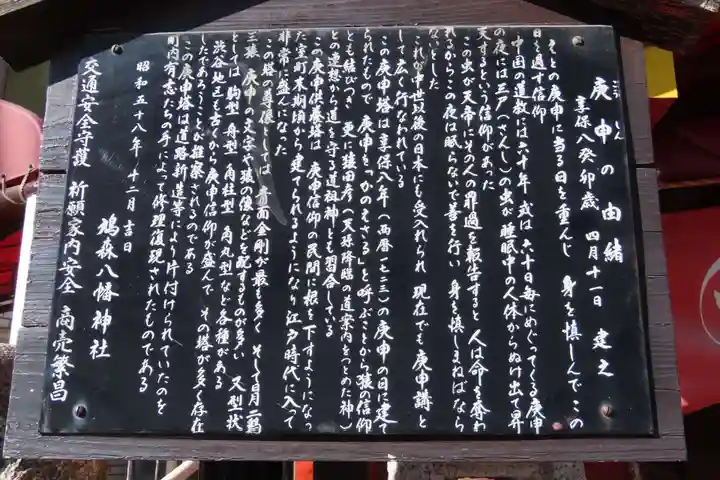 こうしん
庚申の由緒
享保八癸卯歳 四月十一日 建之
えとの庚申に当る日を重んじ 身を慎しんでこの
日を過す信仰
中国の道教には六十年 或は六十日毎にめぐってくる庚申
の夜には三尸(さんし)の虫が睡眠中の人体からぬけ出て昇
天するという信仰があった
この虫が天帝にその人の罪過を報告すると人は命を奪わ
れるからこの夜は眠らないで善を行い 身を慎しまねばなら
ないとした
これが中世以後の日本にも受入れられ 現在でも庚申講と
して広く行なわれている
この庚申塔は享保八年(西暦一七二三)の庚申の日に建て
られたもので 庚申を「かのえさる」と呼ぶことから猿の信仰
とも結びつき 更に猿田彦(天孫降臨の道案内をつとめた神)
との連想から道を守る道祖神とも習合している
この庚申供養塔は 庚申信仰の民間に根を下すようになっ
た室町末期頃から建てられるようになり江戸時代に入って
非常に盛んになった
この塔の尊像としては 青面金剛が最も多く そし日月二鶏
三猿 庚申の文字や猿の像などを配するものが多い 又型状
としては 駒型 舟型 角柱型 角丸型など各種がある
渋谷地区も古くから庚申信仰が盛んで その塔が多く存在
したであろうことが推察されるのである
この庚申塔は道路新造等により片付けられていたのを
町内有志たちの手によって修理復現されたものである
昭和五十八年 十二月 吉日
鳩森八幡神社
交通安全守護 祈願家内安全 商売繁昌